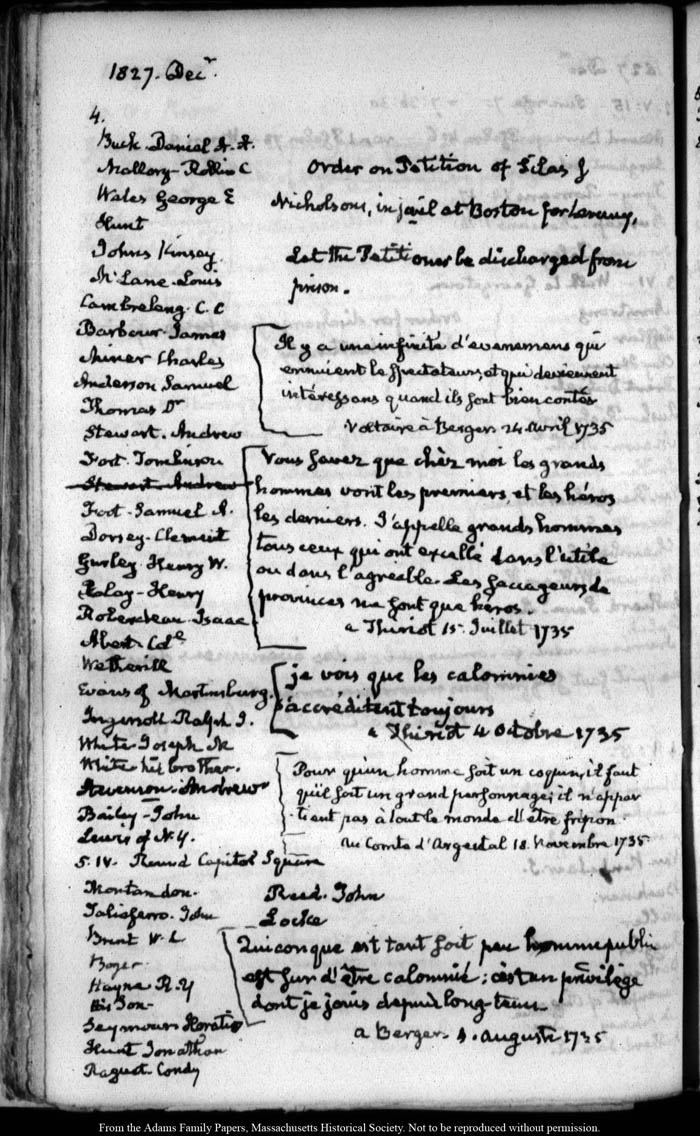 1827. Decr.
4.
Buck Daniel A. A.
Mallory- Rollin C
Wales George E
Hunt
Johns Kinsey.
McLane Louis
Cambreleng. C. C
Barbour James
Miner Charles
Anderson Samuel
Thomas Dr
Stewart. Andrew
Fort. Tomlinson
Stewart. Andrew
Foot. Samuel A.
Dorsey- Clement
Gurley- Henry W.
Clay- Henry
Roberdeau Isaac
Abert Coll
Wetherill
Evans of Martinsburg.
Ingersoll Ralph I.
White Joseph M
White his brother.
Stevenson. Andrew
Bailey- John
Lewis of N.Y.
5. IV. Round Capitol Square
Montandon.
Taliaferro. John
Brent W. L
Boyer
Hayne R. Y
His Son-
Seymour Horatio
Hunt Jonathan
Raguet- Condy
Order on Petition of Silas J
Nicholson, in jail at Boston for Larceny,
Let the Petitioner be discharged from
prison.
Il y a une infinité d'evenemens qui
ennuient le spectateur, et qui deviennent
intéressans quand ils sont bien contés
Voltaire à Berger. 24. Avril 1735
Vous savez que chèz moi les grands
hommes vont les premiers, et les héros
les derniers. J'appelle grands hommes
tous ceux qui ont excellé dans l'utile
ou dans l'agréable. Les saccageurs de
provinces ne sont que héros.
a Thiriot 15. Juillet 1735
je vois que les calomnies
s'accréditent toujours
a Thiriot 4 Octobre 1735
Pour qu'un homme soit un coquin, il faut
qu'il soit un grand personnage; il n'appar
tient pas à tout le monde d'être fripon.
Au Comte d'Argental 18. Novembre 1735.
Reed. John
Locke
Quiconque est tant soit peu homme public
est sur d'être calomnié; c'est un privilège
dont je jouis depuis long-tems
a Berger. 4. Auguste 1735
From the Adams Family Papers, Massachusetts Historical Society. Not to be reproduced without permission.